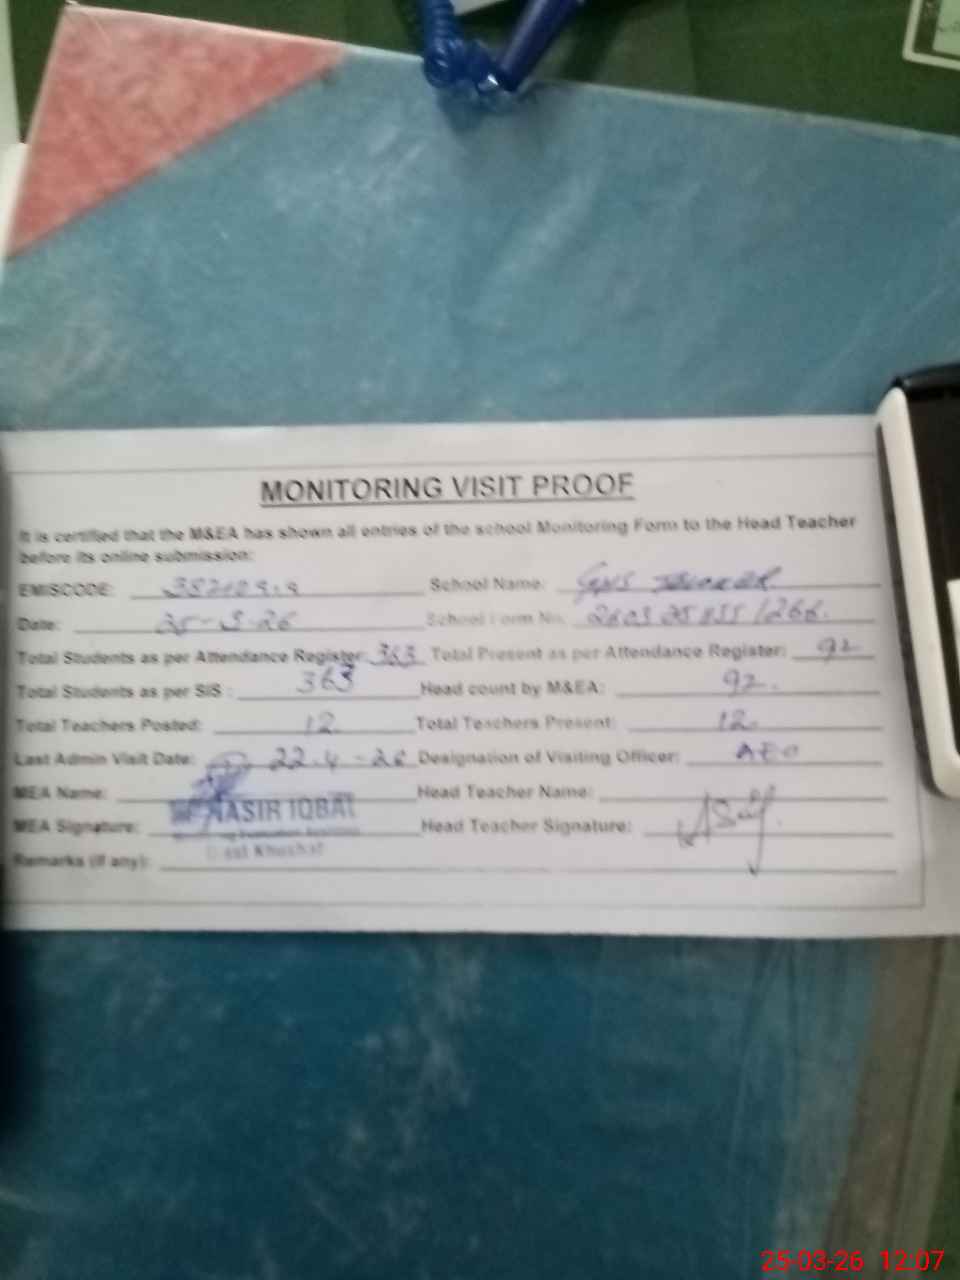 MONITORING VISIT PROOF
It is certified that the M&EA has shown all entries of the school Monitoring Form to the Head Teacher
before its online submission:
EMISCODE: School Name: GHS
Date: 25-3-26 School Form No.
Total Students as per Attendance Register: 363 Total Present as per Attendance Register: 92
Total Students as per SIS: 363 Head count by M&EA: 92.
Total Teachers Posted: 12 Total Teachers Present: 12
Last Admin Visit Date: Designation of Visiting Officer: AEO
MEA Name: Head Teacher Name:
NASIR IQBAL
MEA Signature: Head Teacher Signature:
Remarks (if any):
25-03-26 12:07